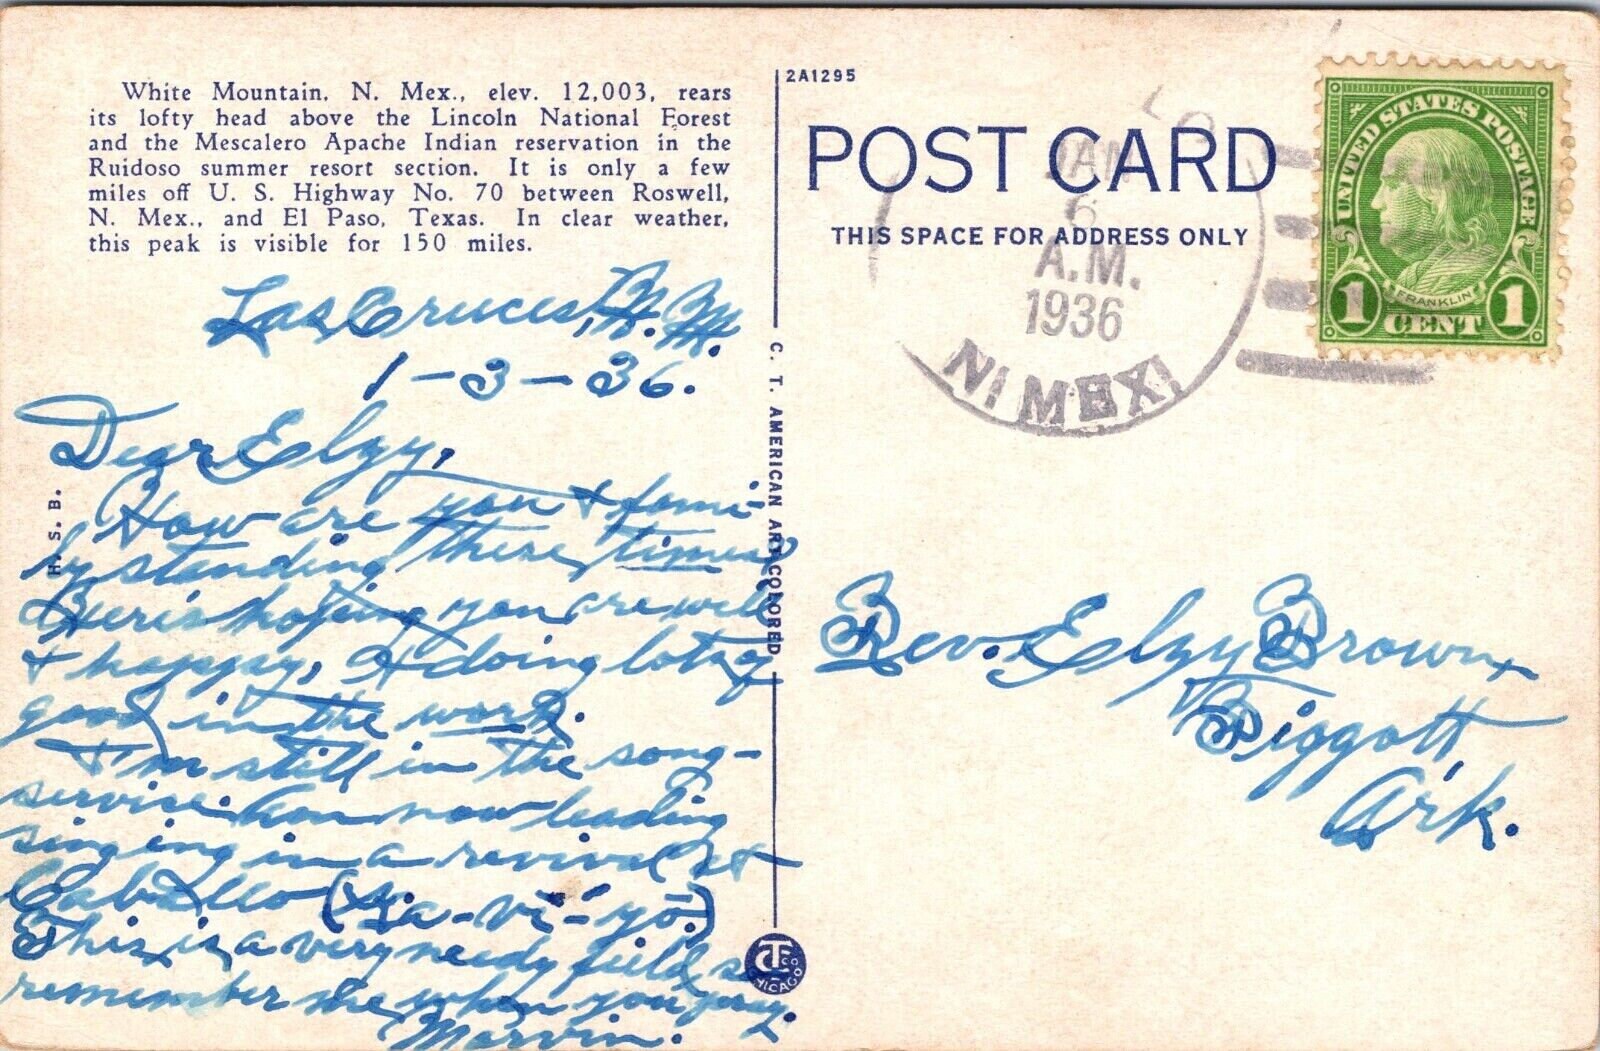 White Mountain, N. Mex., elev. 12,003, rears
its lofty head above the Lincoln National Forest
and the Mescalero Apache Indian reservation in the
Ruidoso summer resort section. It is only a few
miles off U. S. Highway No. 70 between Roswell,
N. Mex., and El Paso, Texas. In clear weather,
this peak is visible for 150 miles.
Las Cruces, N. M.
1-3-36.
Dear Elzy,
How are you & fami-
ly standing these times?
Here's hoping you are well
& happy, & doing lots of
good in the work.
I'm still in the song-
service. Am now leading
singing in a revival at
Caballo (Ka-vi-yo.)
This is a very needy field, so
remember me when you pray.
Marvin.
H. S. B.
C. T. AMERICAN ART COLORED
CHICAGO
2A1295
POST CARD
THIS SPACE FOR ADDRESS ONLY
JAN
6
A.M.
1936
N. MEX.
UNITED STATES POSTAGE
FRANKLIN
1 CENT 1
Rev. Elzy Brown,
Piggott,
Ark.